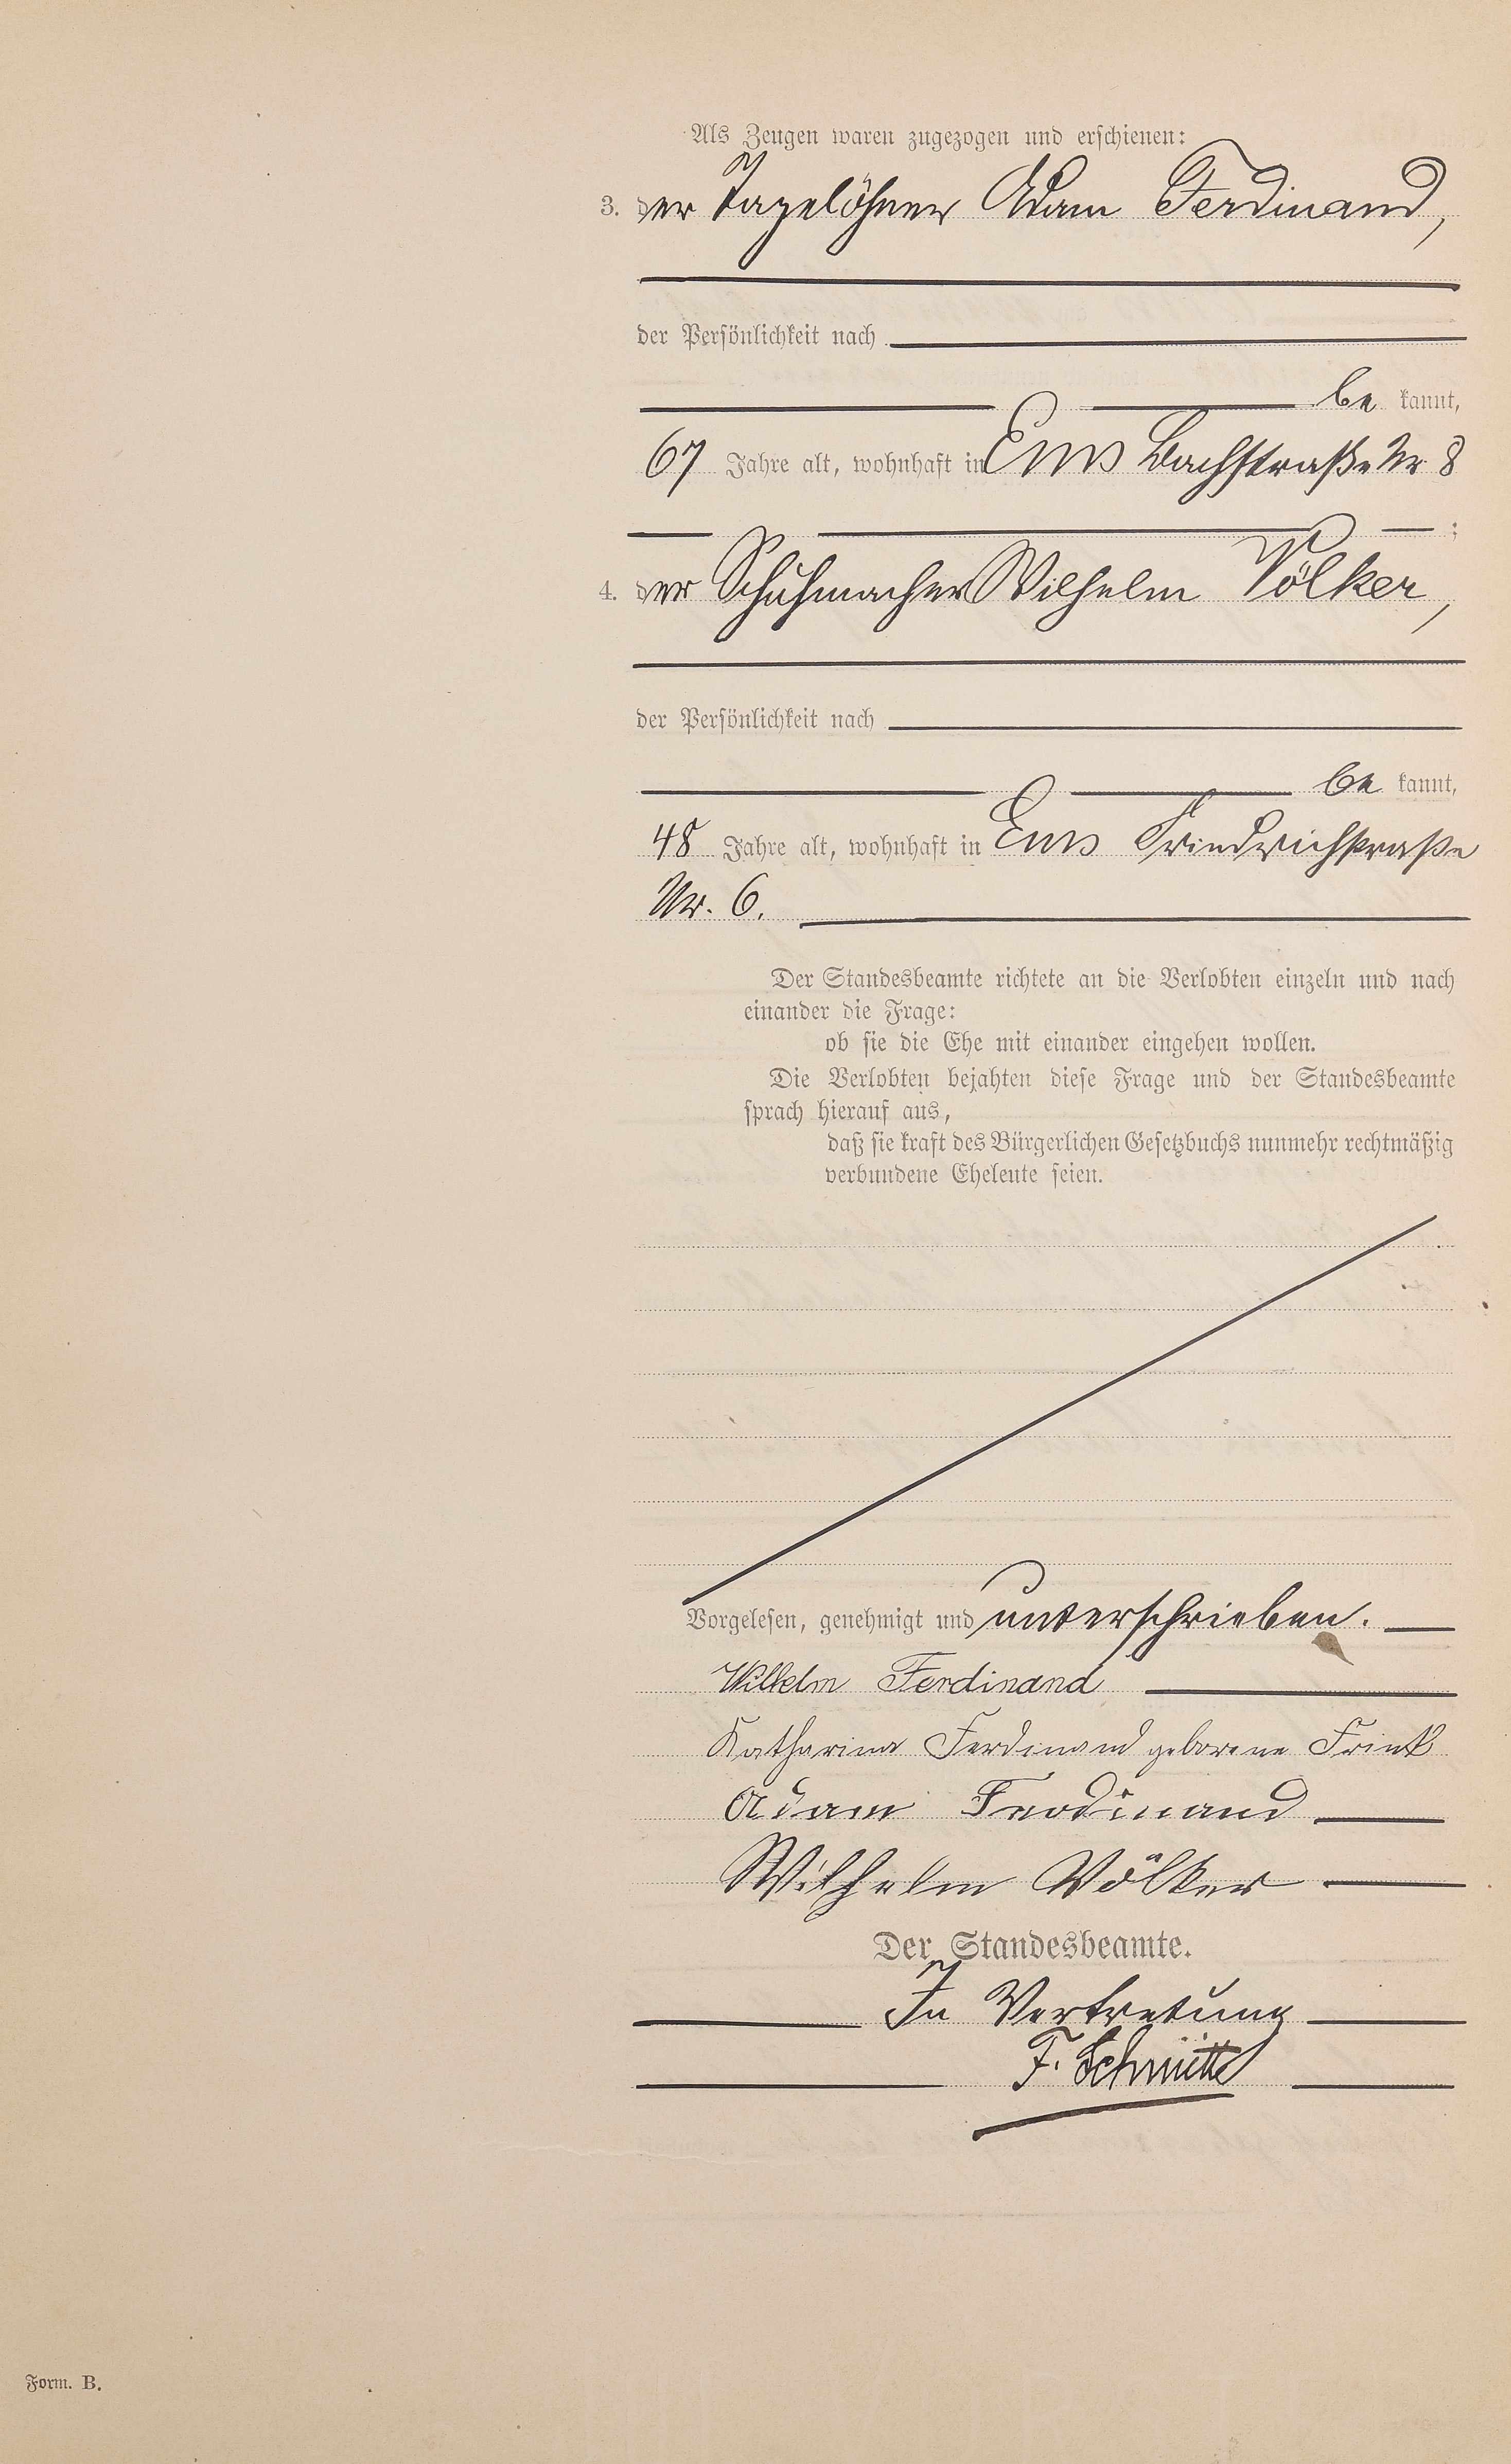 Als Zeugen waren zugezogen und erschienen:
3. der Tagelöhner Adam Ferdinand,
der Persönlichkeit nach
be kannt,
67 Jahre alt, wohnhaft in Ems Bachstraße Nr 8
;
4. der Schuhmacher Wilhelm Völker,
der Persönlichkeit nach
be kannt,
48 Jahre alt, wohnhaft in Ems Friedrichstraße
Nr. 6.
Der Standesbeamte richtete an die Verlobten einzeln und nach
einander die Frage:
ob sie die Ehe mit einander eingehen wollen.
Die Verlobten bejahten diese Frage und der Standesbeamte
sprach hierauf aus,
daß sie kraft des Bürgerlichen Gesetzbuchs nunmehr rechtmäßig
verbundene Eheleute seien.
Vorgelesen, genehmigt und unterschrieben.
Wilhelm Ferdinand
Katharina Ferdinand geborene Frink
Adam Ferdinand
Wilhelm Völker
Der Standesbeamte.
In Vertretung
F. Schmitt
Form. B.